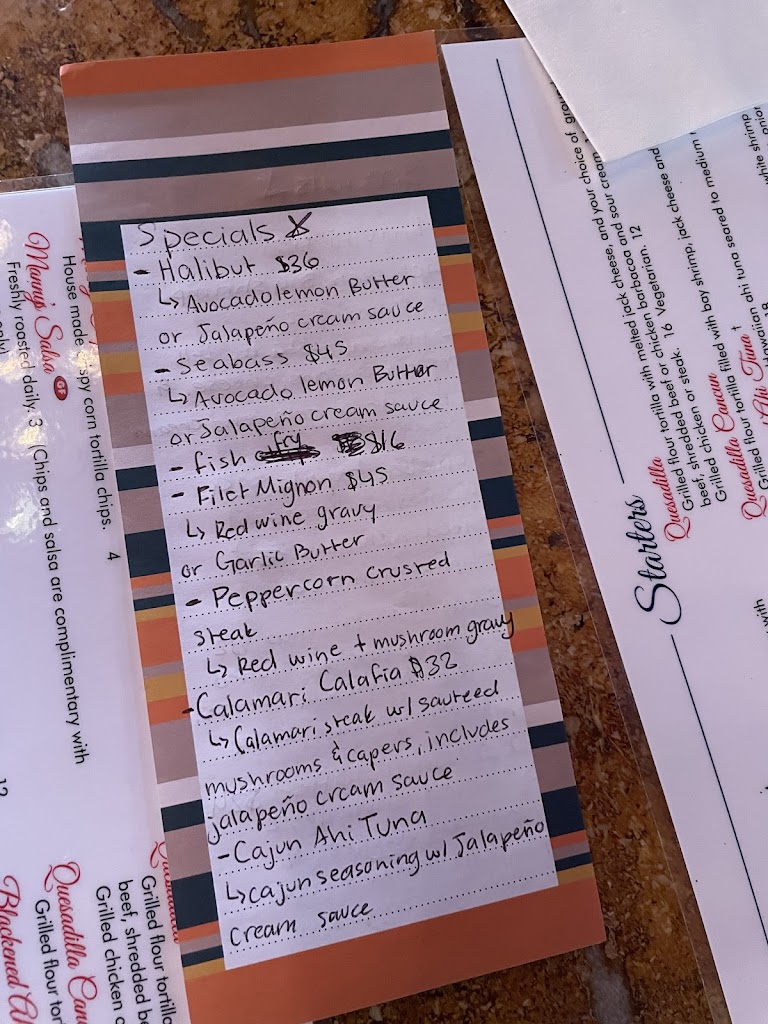 Specials
- Halibut $36
↳ Avocado lemon Butter
or Jalapeño cream sauce
- Seabass $45
↳ Avocado lemon Butter
or Jalapeño cream sauce
- fish fry $16
- Filet Mignon $45
↳ Red wine gravy
or Garlic Butter
- Peppercorn crusted
steak
↳ Red wine + mushroom gravy
- Calamari Calafia $32
↳ Calamari steak w/ sauteed
mushrooms & capers, includes
jalapeño cream sauce
- Cajun Ahi Tuna
↳ cajun seasoning w/ Jalapeño
cream sauce
House made
spy corn tortilla chips. 4
Manny's Salsa GF
Freshly roasted daily. 3 (Chips and salsa are complimentary with
12
Quesadilla
Grilled flour tortilla
beef, shredded be
Grilled chicken o
Quesadilla Canc
Grilled flour tor
Blackened Ah
Starters
Quesadilla
Grilled flour tortilla with melted jack cheese, and your choice of
beef, shredded beef or chicken, barbacoa and sour cream
Grilled chicken or steak. 16 Vegetarian. 12
Quesadilla Cancun
Grilled flour tortilla filled with bay shrimp, jack cheese and
Ahi Tuna
awaiian ahi tuna seared to medium
18
white shrimp
with